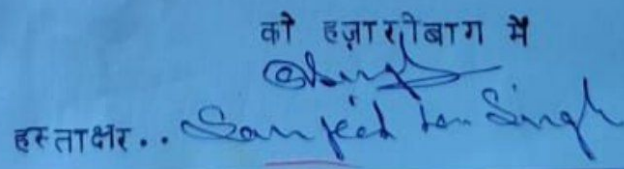 को हज़ारीबाग में
हस्ताक्षर.. Sanjeet Singh